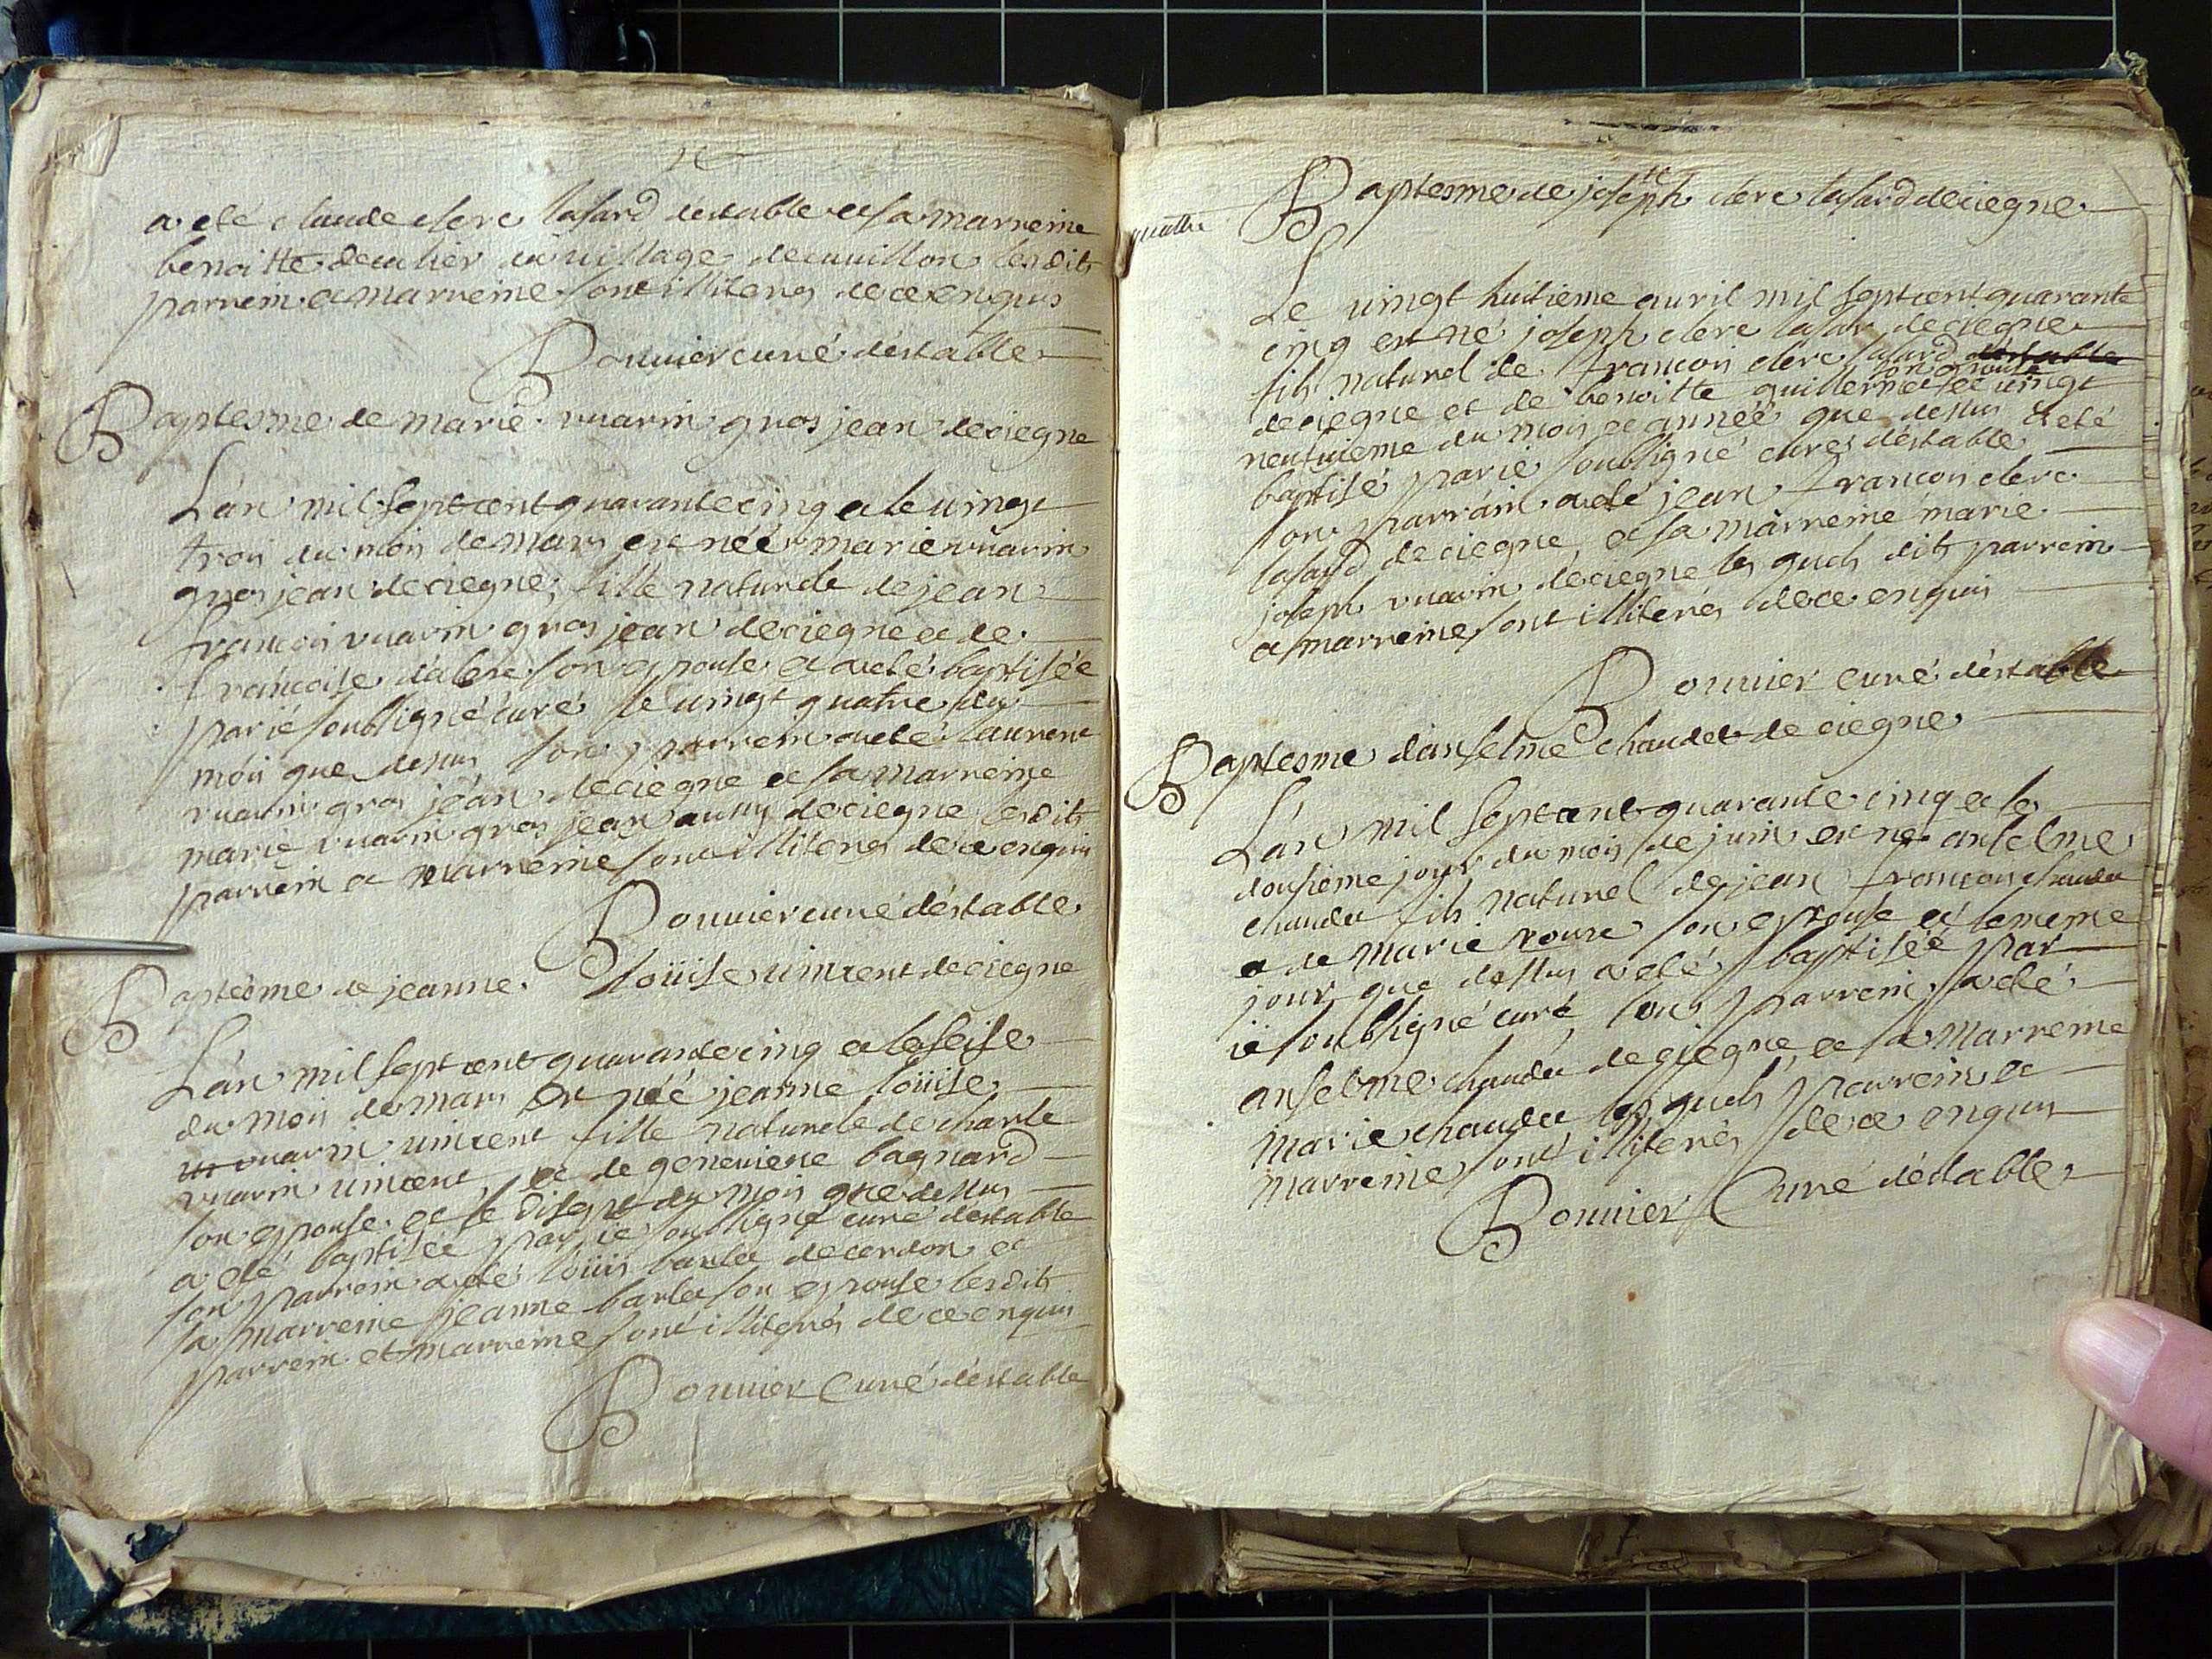 a eté claude clerc lasard destable et sa marreine
benoitte decuhier du village decuvillon lesdits
parrein et marreine sont illiterés de ce enquis
Bouvier curé déstable
Baptesme de marie vuarin gros jean deciegne
L'an mil sept cent quarante cinq et le vingt
trois du mois de mars est néé marie vuarin
gros jean deciegne, fille naturele de jean
francois vuarin gros jean deciegne et de
francoise son epouse et a eté baptisée
par ié soubsigné curé le vingt quatre du
mois que dessus son parrein a eté laurent
vuarin gros jean deciegne et sa marreine
marie vuarin gros jean aussy deciegne lesdits
parrein et marreine sont illiterés de ce enquis
Bouvier curé déstable
Baptesme de jeanne Loüise vincent deciegne
L'an mil sept cent quarante cinq et le seise
du mois de mars est néé jeanne loüise
vuarin vincent fille naturele de charle
vuarin vincent et de genevieve bagnard
son epouse et le disept du mois que dessus
a eté baptisée par ié soubsigné curé destable
son parrein a eté loüis barlet decordon et
sa marreine jeanne barlet son epouse lesdits
parrein et marreine sont illiterés de ce enquis
Bouvier Curé déstable
quattre
Baptesme de joseph clerc lasard deciegne
Le vingt huitieme avril mil sept cent quarante
cinq est né joseph clerc lasar deciegne
fils naturel de francois clerc lasard destable
deciegne et de benoitte guillermet son epouse et le vingt
neufvieme du mois et année que dessus a eté
baptisé par ié soubsigné curé déstable
son parrain a eté jean francois clerc
lasard deciegne et sa marreine marie
joseph vuarin deciegne les quels dits parrein
et marreine sont illiterés de ce enquis
Bouvier curé déstable
Baptesme d'anselme chaudet de ciegne
L'an mil sept cent quarante cinq et le
dousieme jour du mois de juin est né anselme
chaudet fils naturel de jean francois chaudet
et de marie rouse son epouse et le meme
jour que dessus a eté baptisée par
ié soubsigné curé son parrein a eté
anselme chaudet de ciegne et sa marreine
marie chaudet les quels parrein et
marreine sont illiterés de ce enquis
Bouvier Curé déstable